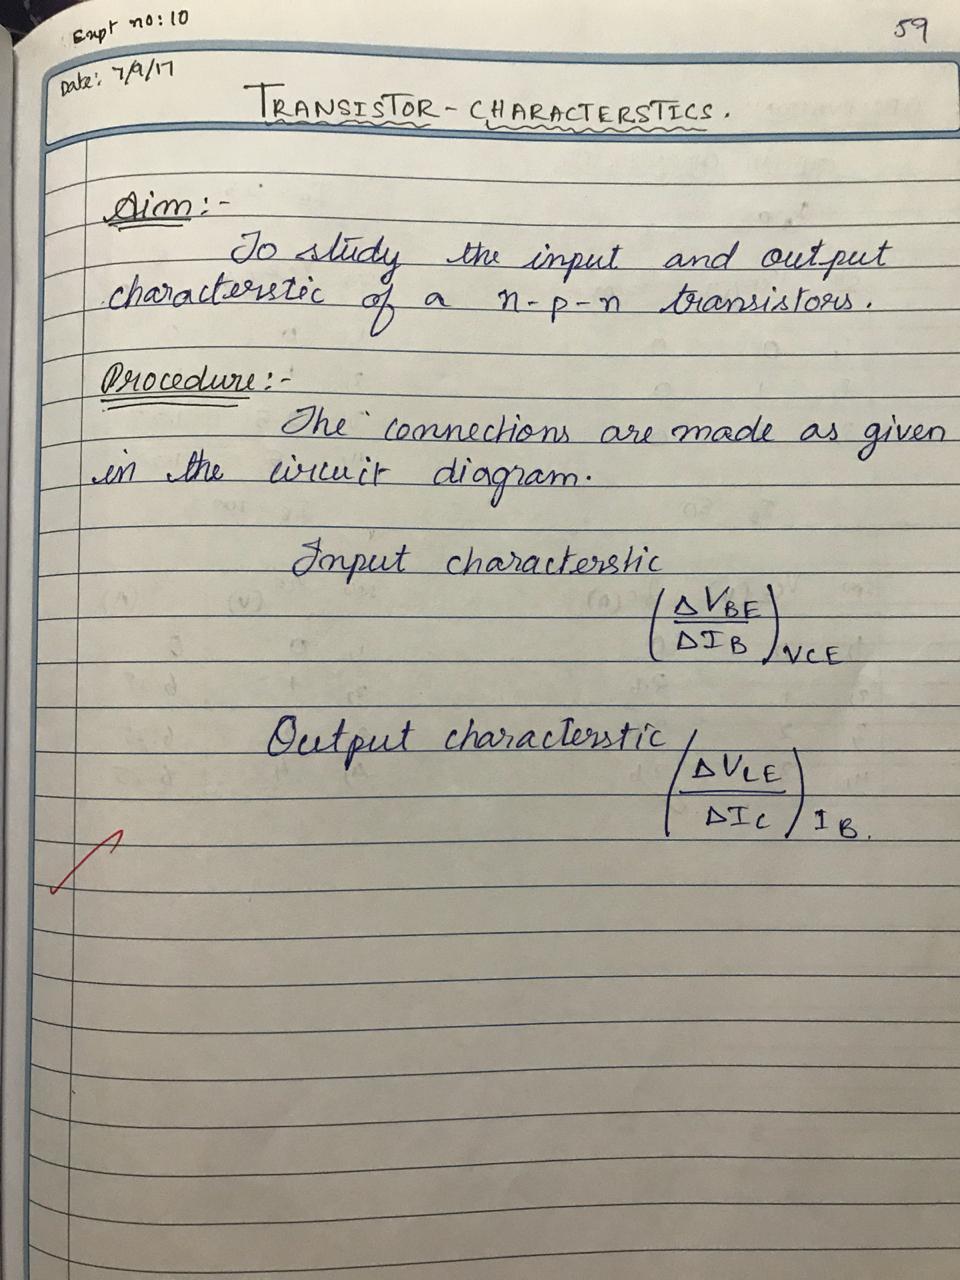 Expt no: 10
59
Date: 7/9/17
TRANSISTOR - CHARACTERSTICS.
Aim :-
To study the input and output
characterstic of a n-p-n transistors.
Procedure :-
The connections are made as given
in the circuit diagram.
Input characterstic
(ΔVBE/ΔIB)VCE
Output characterstic
(ΔVCE/ΔIC)IB.